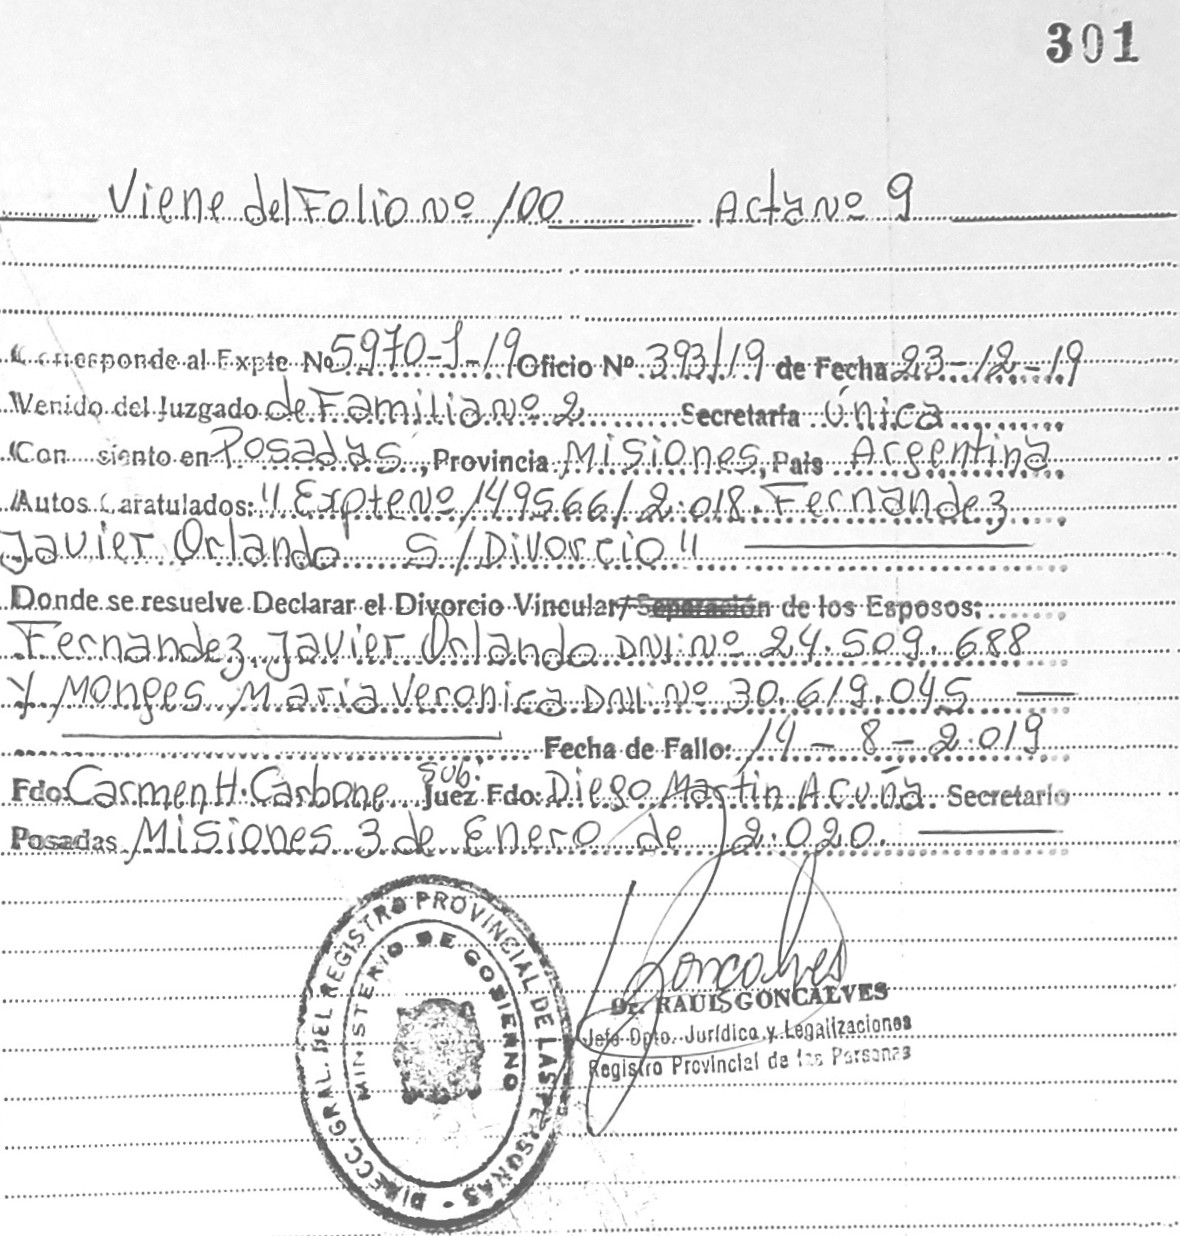 301
Viene del Folio Nº 100 Acta Nº 9
Corresponde al Expte Nº 5970-J-19 Oficio Nº 393/19 de Fecha 23-12-19
Venido del Juzgado de Familia Nº 2 Secretaría Única
Con siento en Posadas, Provincia Misiones, País Argentina
Autos Caratulados: "Expte Nº 149566/2.018. Fernandez
Javier Orlando S/Divorcio"
Donde se resuelve Declarar el Divorcio Vincular/Separación de los Esposos:
Fernandez, Javier Orlando DNI: Nº 24.509.688
Y Monges, Maria Veronica DNI: Nº 30.619.045
Fecha de Fallo: 14-8-2.019
Fdo: Carmen H. Carbone Sub. Juez Fdo: Diego Martin Acuña Secretario
Posadas, Misiones 3 de Enero de 2.020.
DIRECC. GRAL. DEL REGISTRO PROVINCIAL DE LAS PERSONAS -
MINISTERIO DE GOBIERNO
Goncalves
Dr. RAUL S GONCALVES
Jefe Dpto. Jurídico y Legalizaciones
Registro Provincial de las Personas